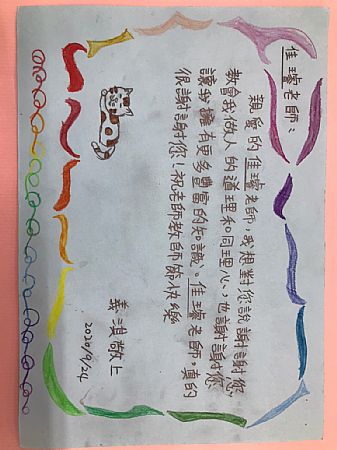 佳璿老師：
親愛的佳璿老師，我想對您說謝謝您，
教會我做人的道理和同理心，也謝謝您
讓我擁有更多豐富的知識。佳璿老師，真的
很謝謝您！祝老師教師節快樂
義淇敬上
2020/9/24